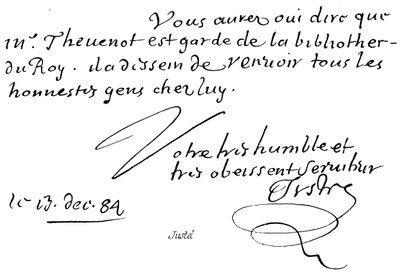 Vous aurez oui dire que
mr. Thevenot est garde de la bibliothe-
du Roy. il a dessein de reuuoir tous les
honnestes gens chez luy.
Votre tres humble et
tres obeissent seruiteur
Justel
le 13. dec. 84
Justel